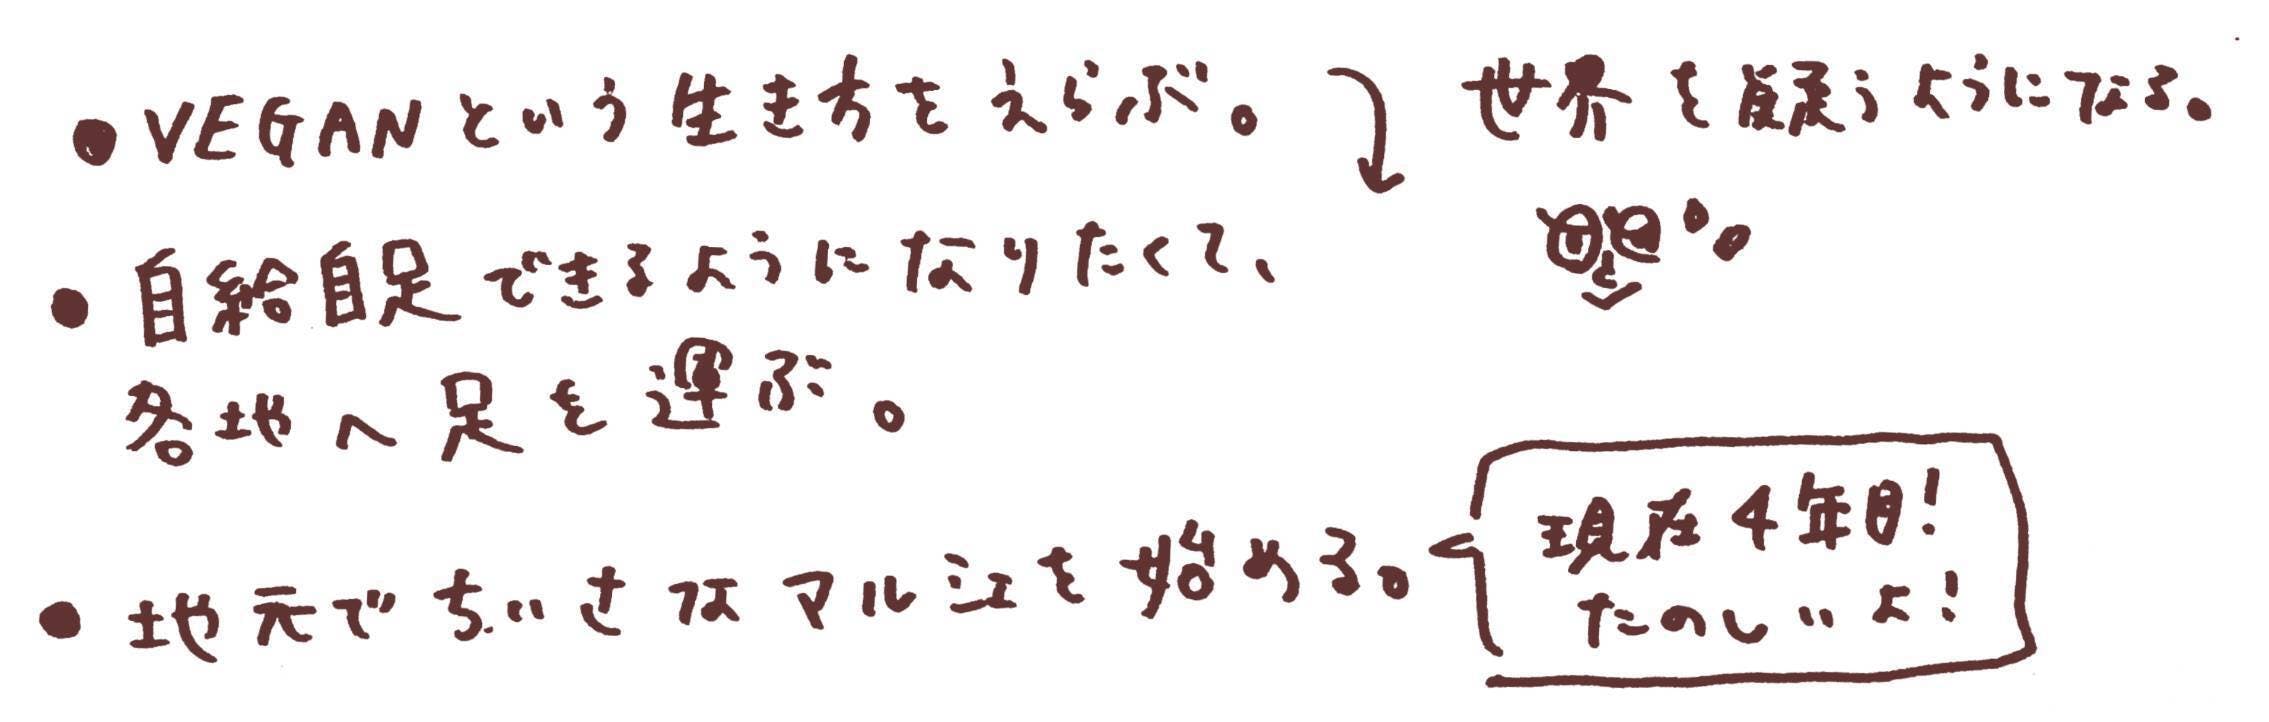 ● VEGANという生き方をえらぶ。 世界を疑うようになる。
● 自給自足できるようになりたくて、
各地へ足を運ぶ。
● 地元でちいさなマル江を始める。
現在4年目!
たのしいよ!